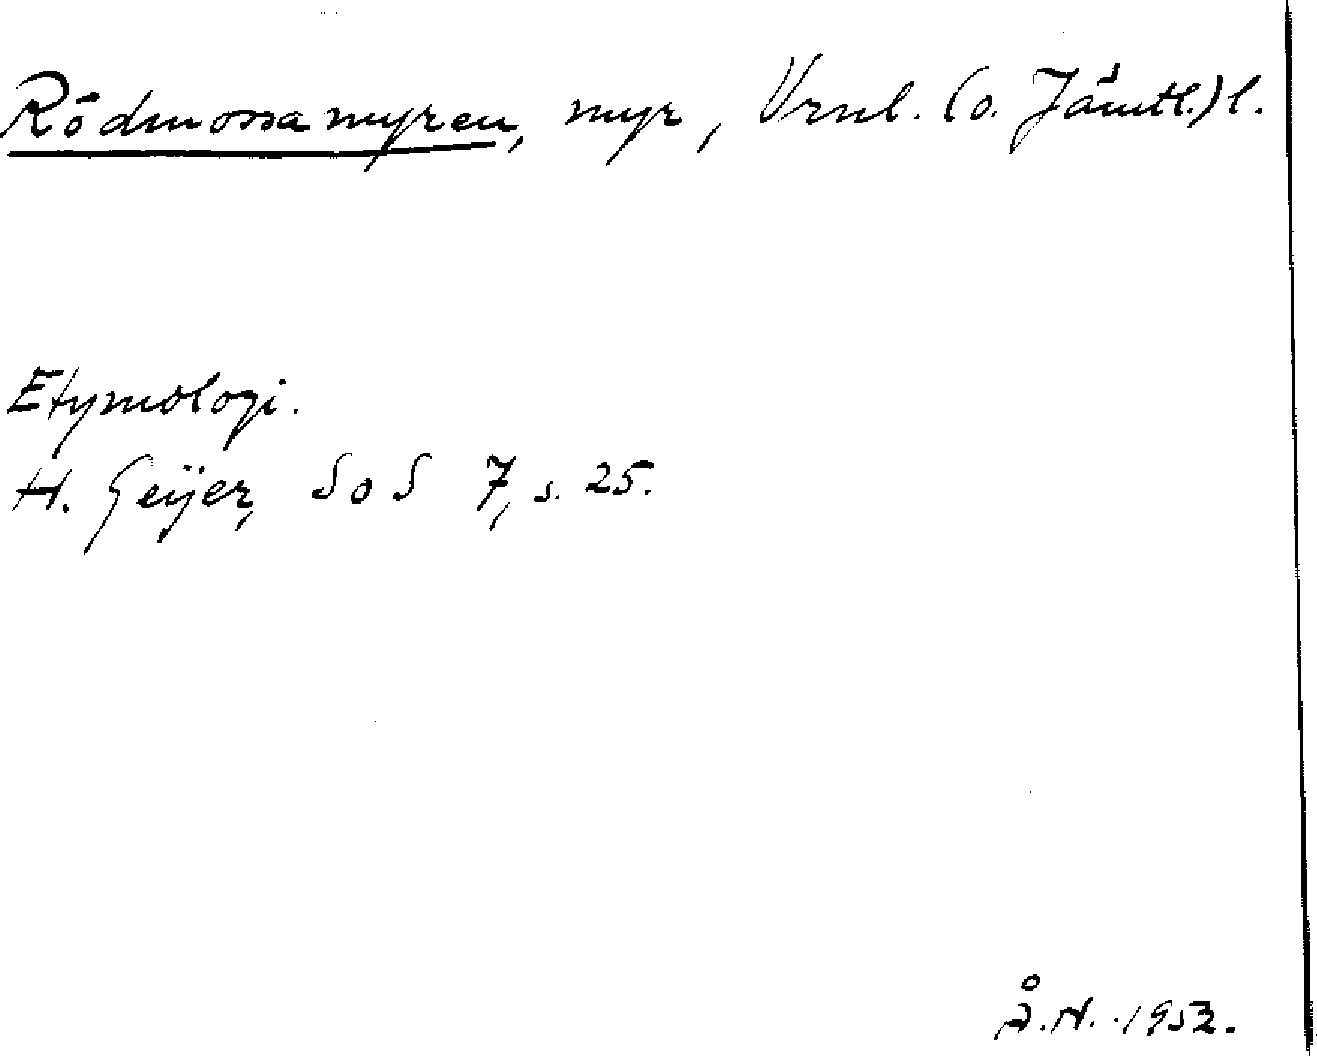 Rödmossamyren, myr, Vrml. (o. Jämtl.) l.
Etymologi.
H. Geijer, SoS 7, s. 25.
Å.N. 1953.